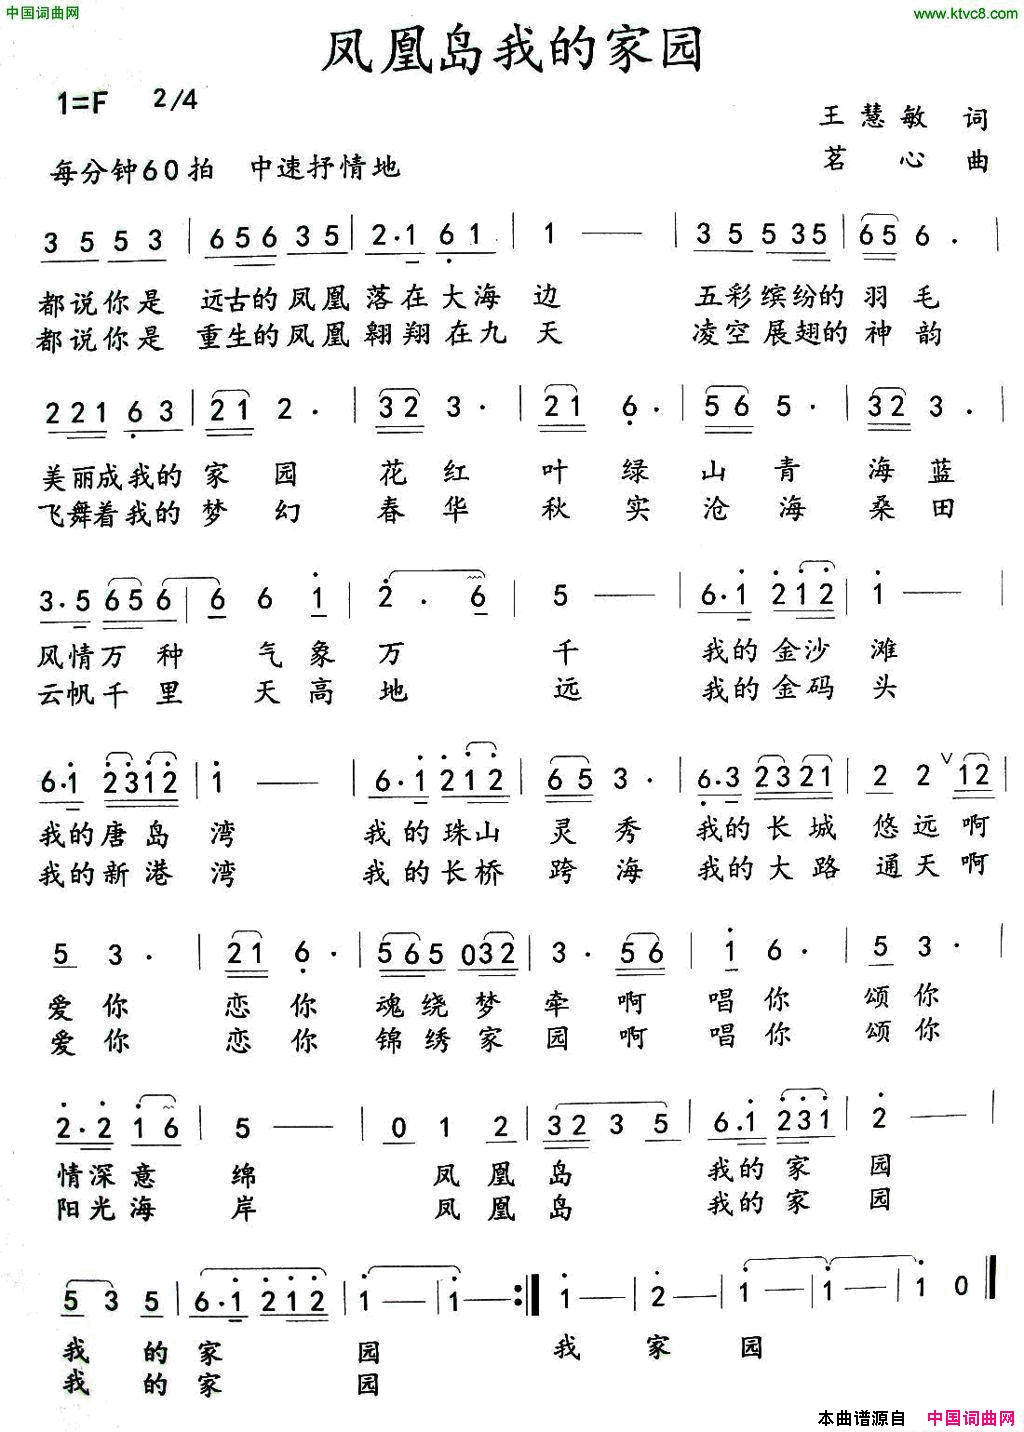 中国词曲网
www.ktvc8.com
凤凰岛我的家园
1=F 2/4
王慧敏 词
每分钟60拍 中速抒情地
茗心 曲
3 5 5 3 | 6 5 6 3 5 | 2·1 6 1 | 1 — | 3 5 5 3 5 | 6 5 6 · |
都说你是 远古的凤凰 落在大海 边 五彩缤纷的 羽毛
都说你是 重生的凤凰 翱翔在九 天 凌空展翅的 神韵
2 2 1 6 3 | 2 1 2 · | 3 2 3 · | 2 1 6 · | 5 6 5 · | 3 2 3 · |
美丽成我的 家园 花红 叶绿 山青 海蓝
飞舞着我的 梦幻 春华 秋实 沧海 桑田
3·5 6 5 6 | 6 6 1 | 2 · 6 | 5 — | 6·1 2 1 2 | 1 — |
风情万种 气象 万 千 我的金沙 滩
云帆千里 天高 地 远 我的金码 头
6·1 2 3 1 2 | 1 — | 6·1 2 1 2 | 6 5 3 · | 6·3 2 3 2 1 | 2 2 ∨ 1 2 |
我的唐岛 湾 我的珠山 灵秀 我的长城 悠远啊
我的新港 湾 我的长桥 跨海 我的大路 通天啊
5 3 · | 2 1 6 · | 5 6 5 0 3 2 | 3 · 5 6 | 1 6 · | 5 3 · |
爱你 恋你 魂绕梦 牵啊 唱你 颂你
爱你 恋你 锦绣家 园啊 唱你 颂你
2·2 1 6 | 5 — | 0 1 2 | 3 2 3 5 | 6·1 2 3 1 | 2 — |
情深意 绵 凤凰 岛 我的家 园
阳光海 岸 凤凰 岛 我的家 园
5 3 5 | 6·1 2 1 2 | 1 — | 1 — :| 1 — | 2 — | 1 — | 1 — | 1 0 ‖
我的 家 园 我 家 园
我的 家 园
本曲谱源自 中国词曲网